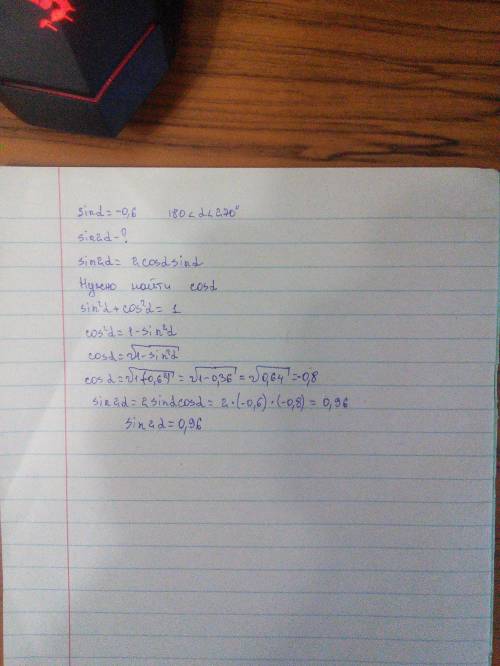 sinα=-0,6 180<α<270°
sin2α-?
sin2α= 2cosαsinα
Нужно найти cosα
sin²α+cos²α=1
cos²α=1-sin²α
cosα=√1-sin²α
cosα=√1-0,6² = √1-0,36 = √0,64 =-0,8
sin2α=2sinαcosα= 2·(-0,6)·(-0,8) = 0,96
sin2α=0,96